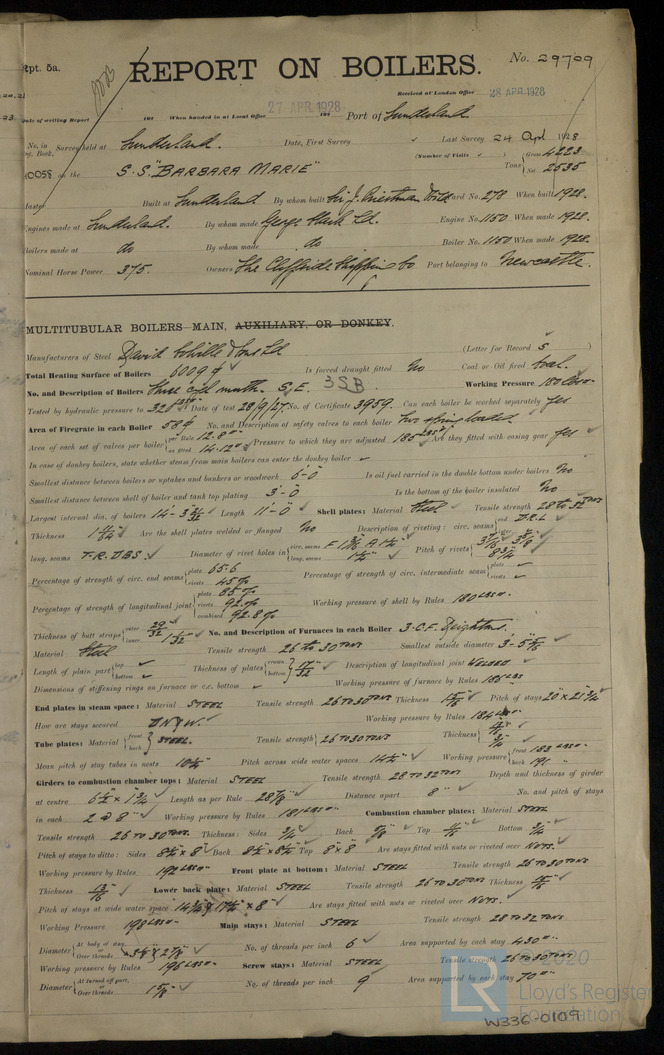 Rpt. 5a.
REPORT ON BOILERS.
No. 29709
Received at London Office 28 APR. 1928
Date of writing Report 192 When handed in at Local Office 27 APR. 1928 192 Port of Sunderland
No. in Reg. Book. Survey held at Sunderland. Date, First Survey Last Survey 24 Apl 1928
on the S.S. "BARBARA MARIE" (Number of Visits ) Tons Gross 4223 Net 2535
Master Built at Sunderland By whom built Sir J. Priestman Yard No. 278 When built 1928.
Engines made at Sunderland. By whom made George Clark Ld. Engine No. 1150 When made 1928.
Boilers made at do By whom made do. Boiler No. 1150 When made 1928.
Nominal Horse Power 375. Owners The Cliffside Shipping Co Port belonging to Newcastle.
MULTITUBULAR BOILERS MAIN, AUXILIARY, OR DONKEY.
Manufacturers of Steel David Colville & Sons Ld (Letter for Record S )
Total Heating Surface of Boilers 6009 Is forced draught fitted No Coal or Oil fired Coal.
No. and Description of Boilers Three cyl. mult. S.E. 3SB Working Pressure 180 lbs
Tested by hydraulic pressure to 320 Date of test 28/9/27. No. of Certificate 3959. Can each boiler be worked separately yes
Area of Firegrate in each Boiler No. and Description of safety valves to each boiler Two spring loaded
Area of each set of valves per boiler per Rule 12.8 as fitted 14.12 Pressure to which they are adjusted 185 lbs Are they fitted with easing gear yes
In case of donkey boilers, state whether steam from main boilers can enter the donkey boiler
Smallest distance between boilers or uptakes and bunkers or woodwork 6'-0" Is oil fuel carried in the double bottom under boilers No
Smallest distance between shell of boiler and tank top plating 3'-0" Is the bottom of the boiler insulated No
Largest internal dia. of boilers Length 11'-0" Shell plates: Material Steel Tensile strength 28 to 32 TONS
Thickness Are the shell plates welded or flanged No Description of riveting: circ. seams end D.R.L
long. seams T.R.D.B.S. Diameter of rivet holes in circ. seams long. seams Pitch of rivets
Percentage of strength of circ. end seams plate 65.6 rivets 45% Percentage of strength of circ. intermediate seam plate rivets
Percentage of strength of longitudinal joint plate 85% rivets 92% combined 92.8% Working pressure of shell by Rules 180 LBS
Thickness of butt straps outer 29/32 inner 1 1/32 No. and Description of Furnaces in each Boiler 3 C.F. Deightons
Material Steel Tensile strength 26 to 30 TONS Smallest outside diameter
Length of plain part top bottom Thickness of plates crown bottom 17/32 Description of longitudinal joint WELDED
Dimensions of stiffening rings on furnace or c.c. bottom Working pressure of furnace by Rules
End plates in steam space: Material STEEL Tensile strength 26 TO 30 TONS Thickness Pitch of stays 20" x 21 3/4"
How are stays secured D.N.&W. Working pressure by Rules 184 LBS
Tube plates: Material front back STEEL. Tensile strength 26 TO 30 TONS Thickness
Mean pitch of stay tubes in nests Pitch across wide water spaces 14 1/2" Working pressure front 183 LBS back 191 "
Girders to combustion chamber tops: Material STEEL Tensile strength 28 TO 32 TONS Depth and thickness of girder
at centre Length as per Rule 28 7/8" Distance apart 8" No. and pitch of stays
in each 2 @ 8" Working pressure by Rules 181 LBS Combustion chamber plates: Material STEEL
Tensile strength 26 TO 30 TONS. Thickness: Sides 3/4" Back Top Bottom 3/4"
Pitch of stays to ditto: Sides Back Top 8" x 8" Are stays fitted with nuts or riveted over NUTS.
Working pressure by Rules 192 LBS Front plate at bottom: Material STEEL Tensile strength 26 TO 30 TONS
Thickness Lower back plate: Material STEEL Tensile strength 26 TO 30 TONS Thickness
Pitch of stays at wide water space Are stays fitted with nuts or riveted over NUTS.
Working Pressure 198 LBS Main stays: Material STEEL Tensile strength 28 TO 32 TONS
Diameter At body of stay, or Over threads No. of threads per inch 6 Area supported by each stay 430
Working pressure by Rules 196 LBS Screw stays: Material STEEL Tensile strength 26 TO 30 TONS
Diameter At turned off part, or Over threads 1 5/8" No. of threads per inch 9 Area supported by each stay 70
2020
Lloyd's Register
Foundation
W336-0109